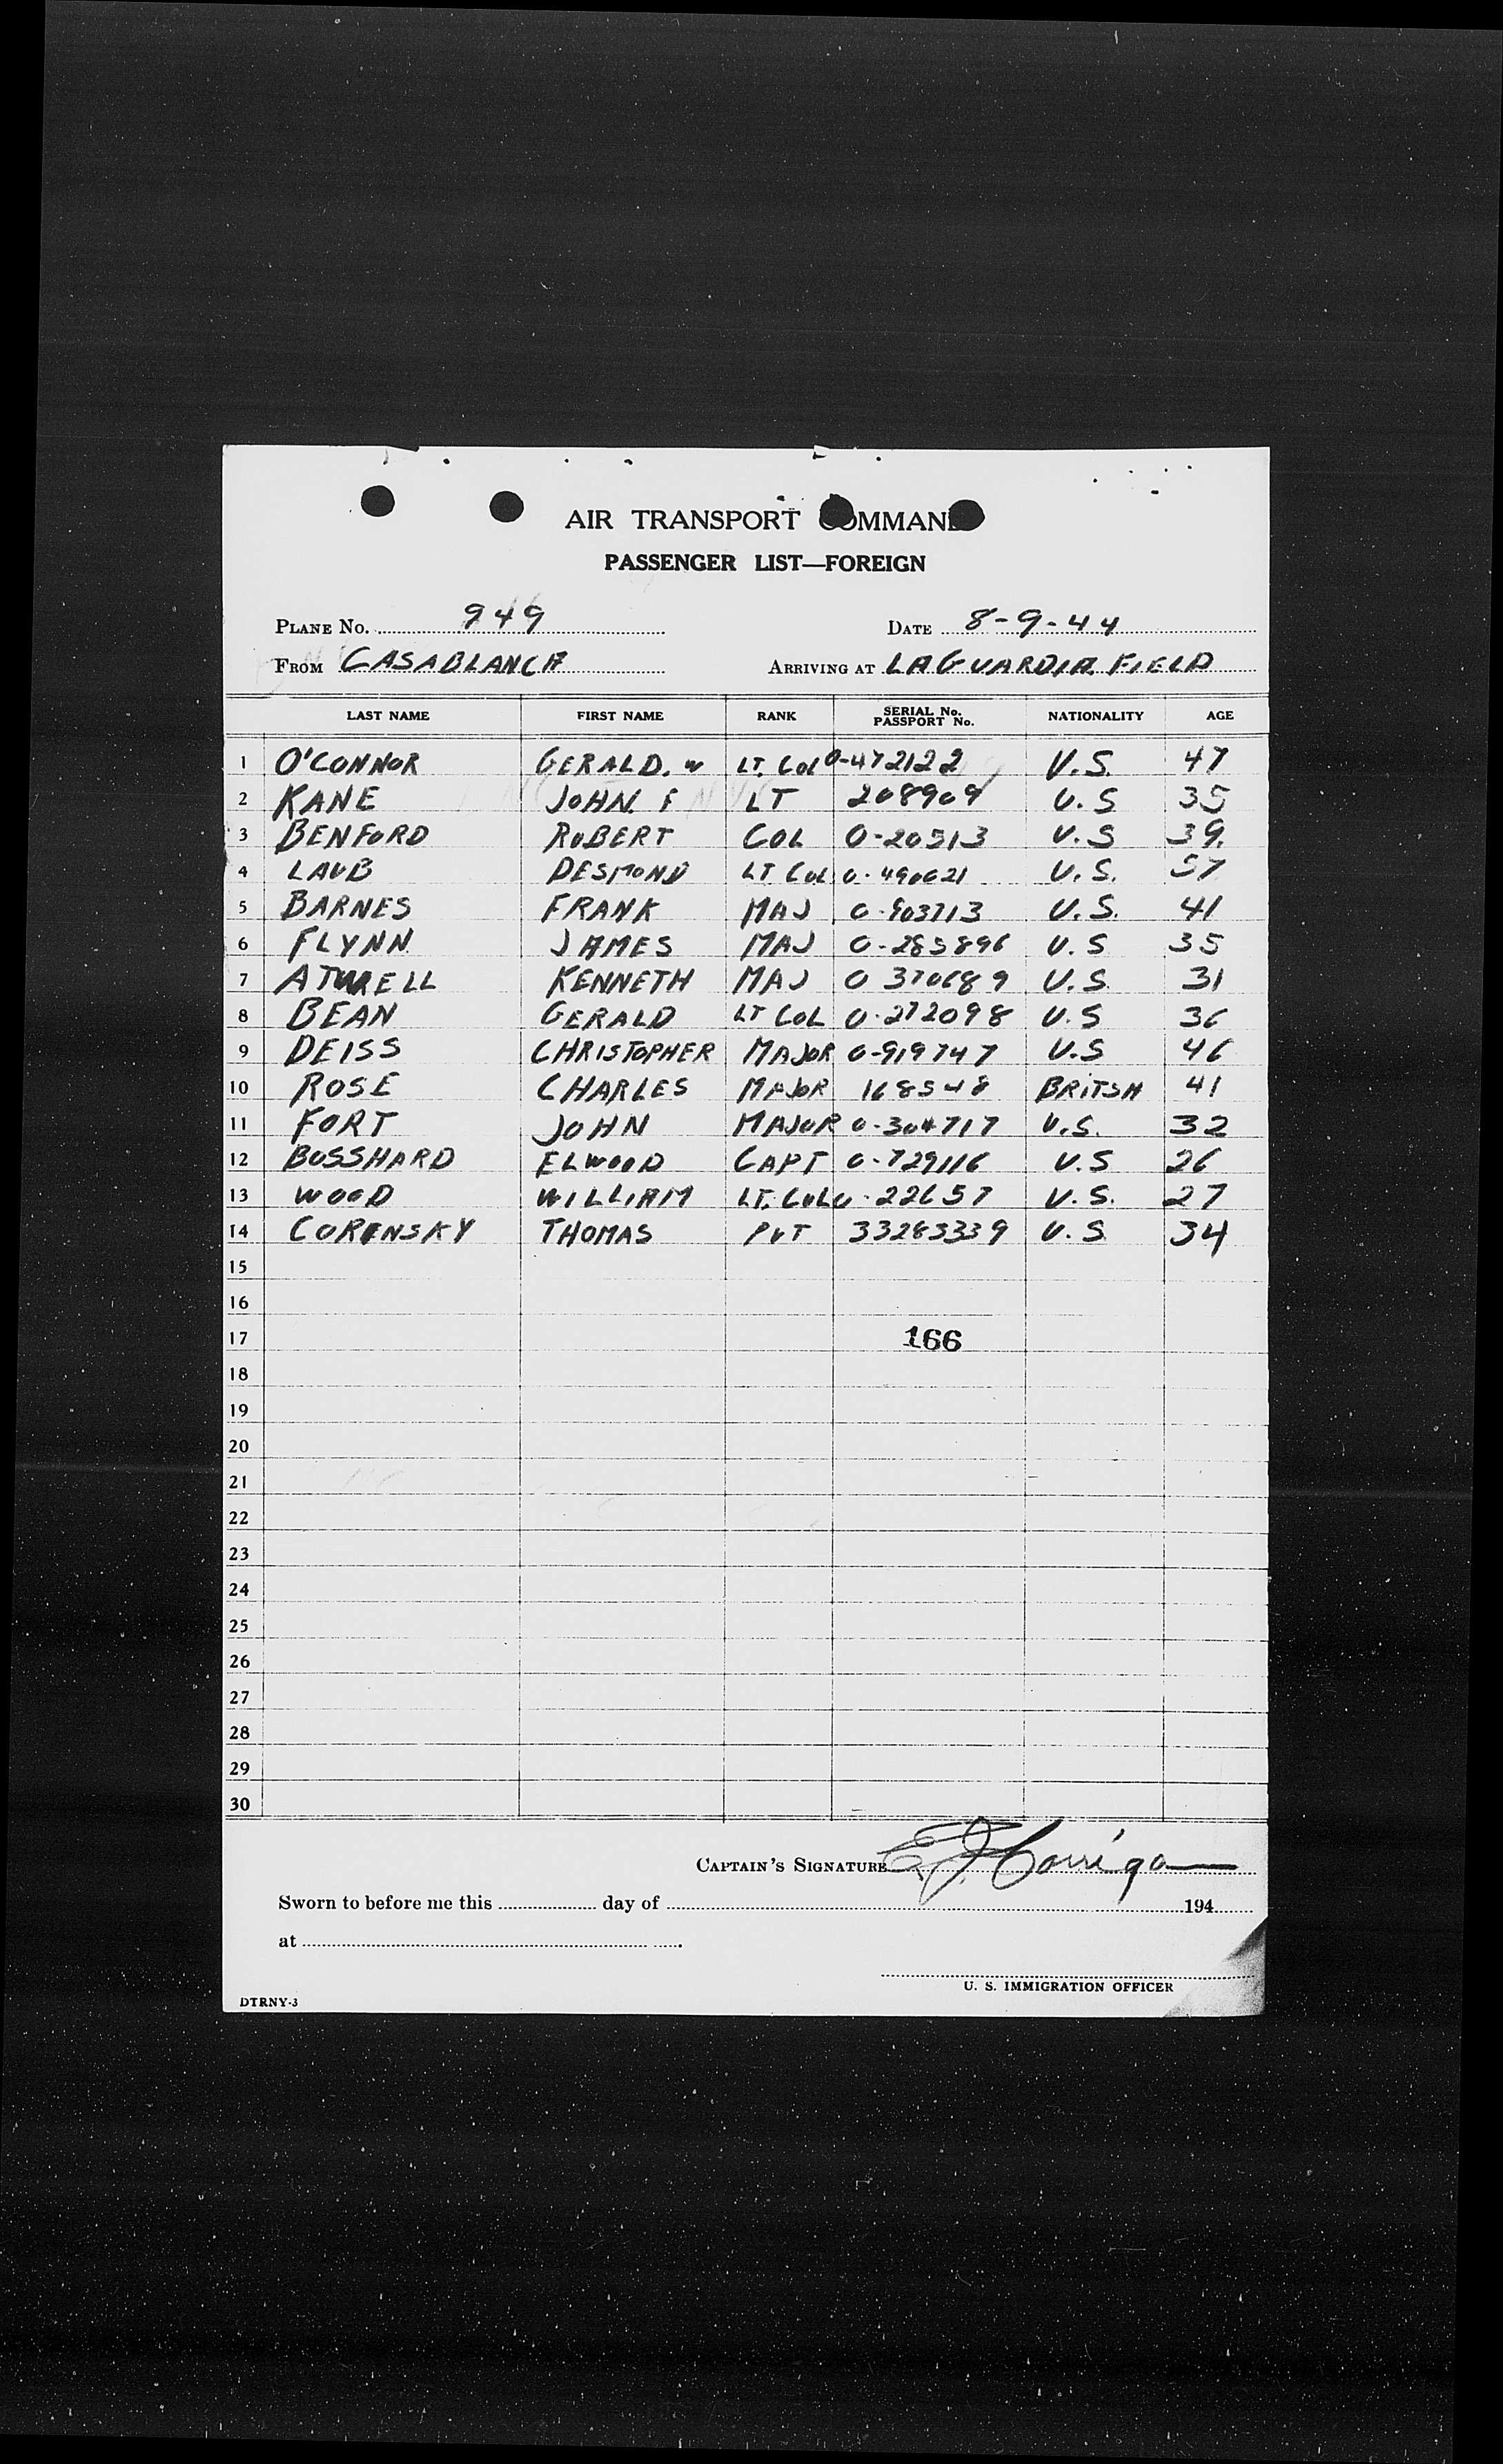 AIR TRANSPORT COMMAND
PASSENGER LIST—FOREIGN
PLANE No. 949 DATE 8-9-44
FROM CASABLANCA ARRIVING AT LAGUARDIA FIELD
LAST NAME FIRST NAME RANK SERIAL No. PASSPORT No. NATIONALITY AGE
1 O'CONNOR GERALD. W LT. COL O-472122 U.S. 47
2 KANE JOHN. F LT 208909 U.S 35
3 BENFORD ROBERT COL O-20513 U.S 39.
4 LAUB DESMOND LT COL O-490621 U.S. 57
5 BARNES FRANK MAJ O-903713 U.S. 41
6 FLYNN JAMES MAJ O-285896 U.S 35
7 ATWELL KENNETH MAJ O 370689 U.S. 31
8 BEAN GERALD LT COL O-272098 U.S 36
9 DEISS CHRISTOPHER MAJOR O-919747 U.S 46
10 ROSE CHARLES MAJOR 168548 BRITSH 41
11 FORT JOHN MAJOR O-304717 U.S. 32
12 BOSSHARD ELWOOD CAPT O-729116 U.S 26
13 WOOD WILLIAM LT. COL O-22657 U.S. 27
14 CORENSKY THOMAS PVT 33283339 U.S. 34
15
16
17 166
18
19
20
21
22
23
24
25
26
27
28
29
30
CAPTAIN'S SIGNATURE E J Corrigan
Sworn to before me this day of 194
at
U. S. IMMIGRATION OFFICER
DTRNY-3